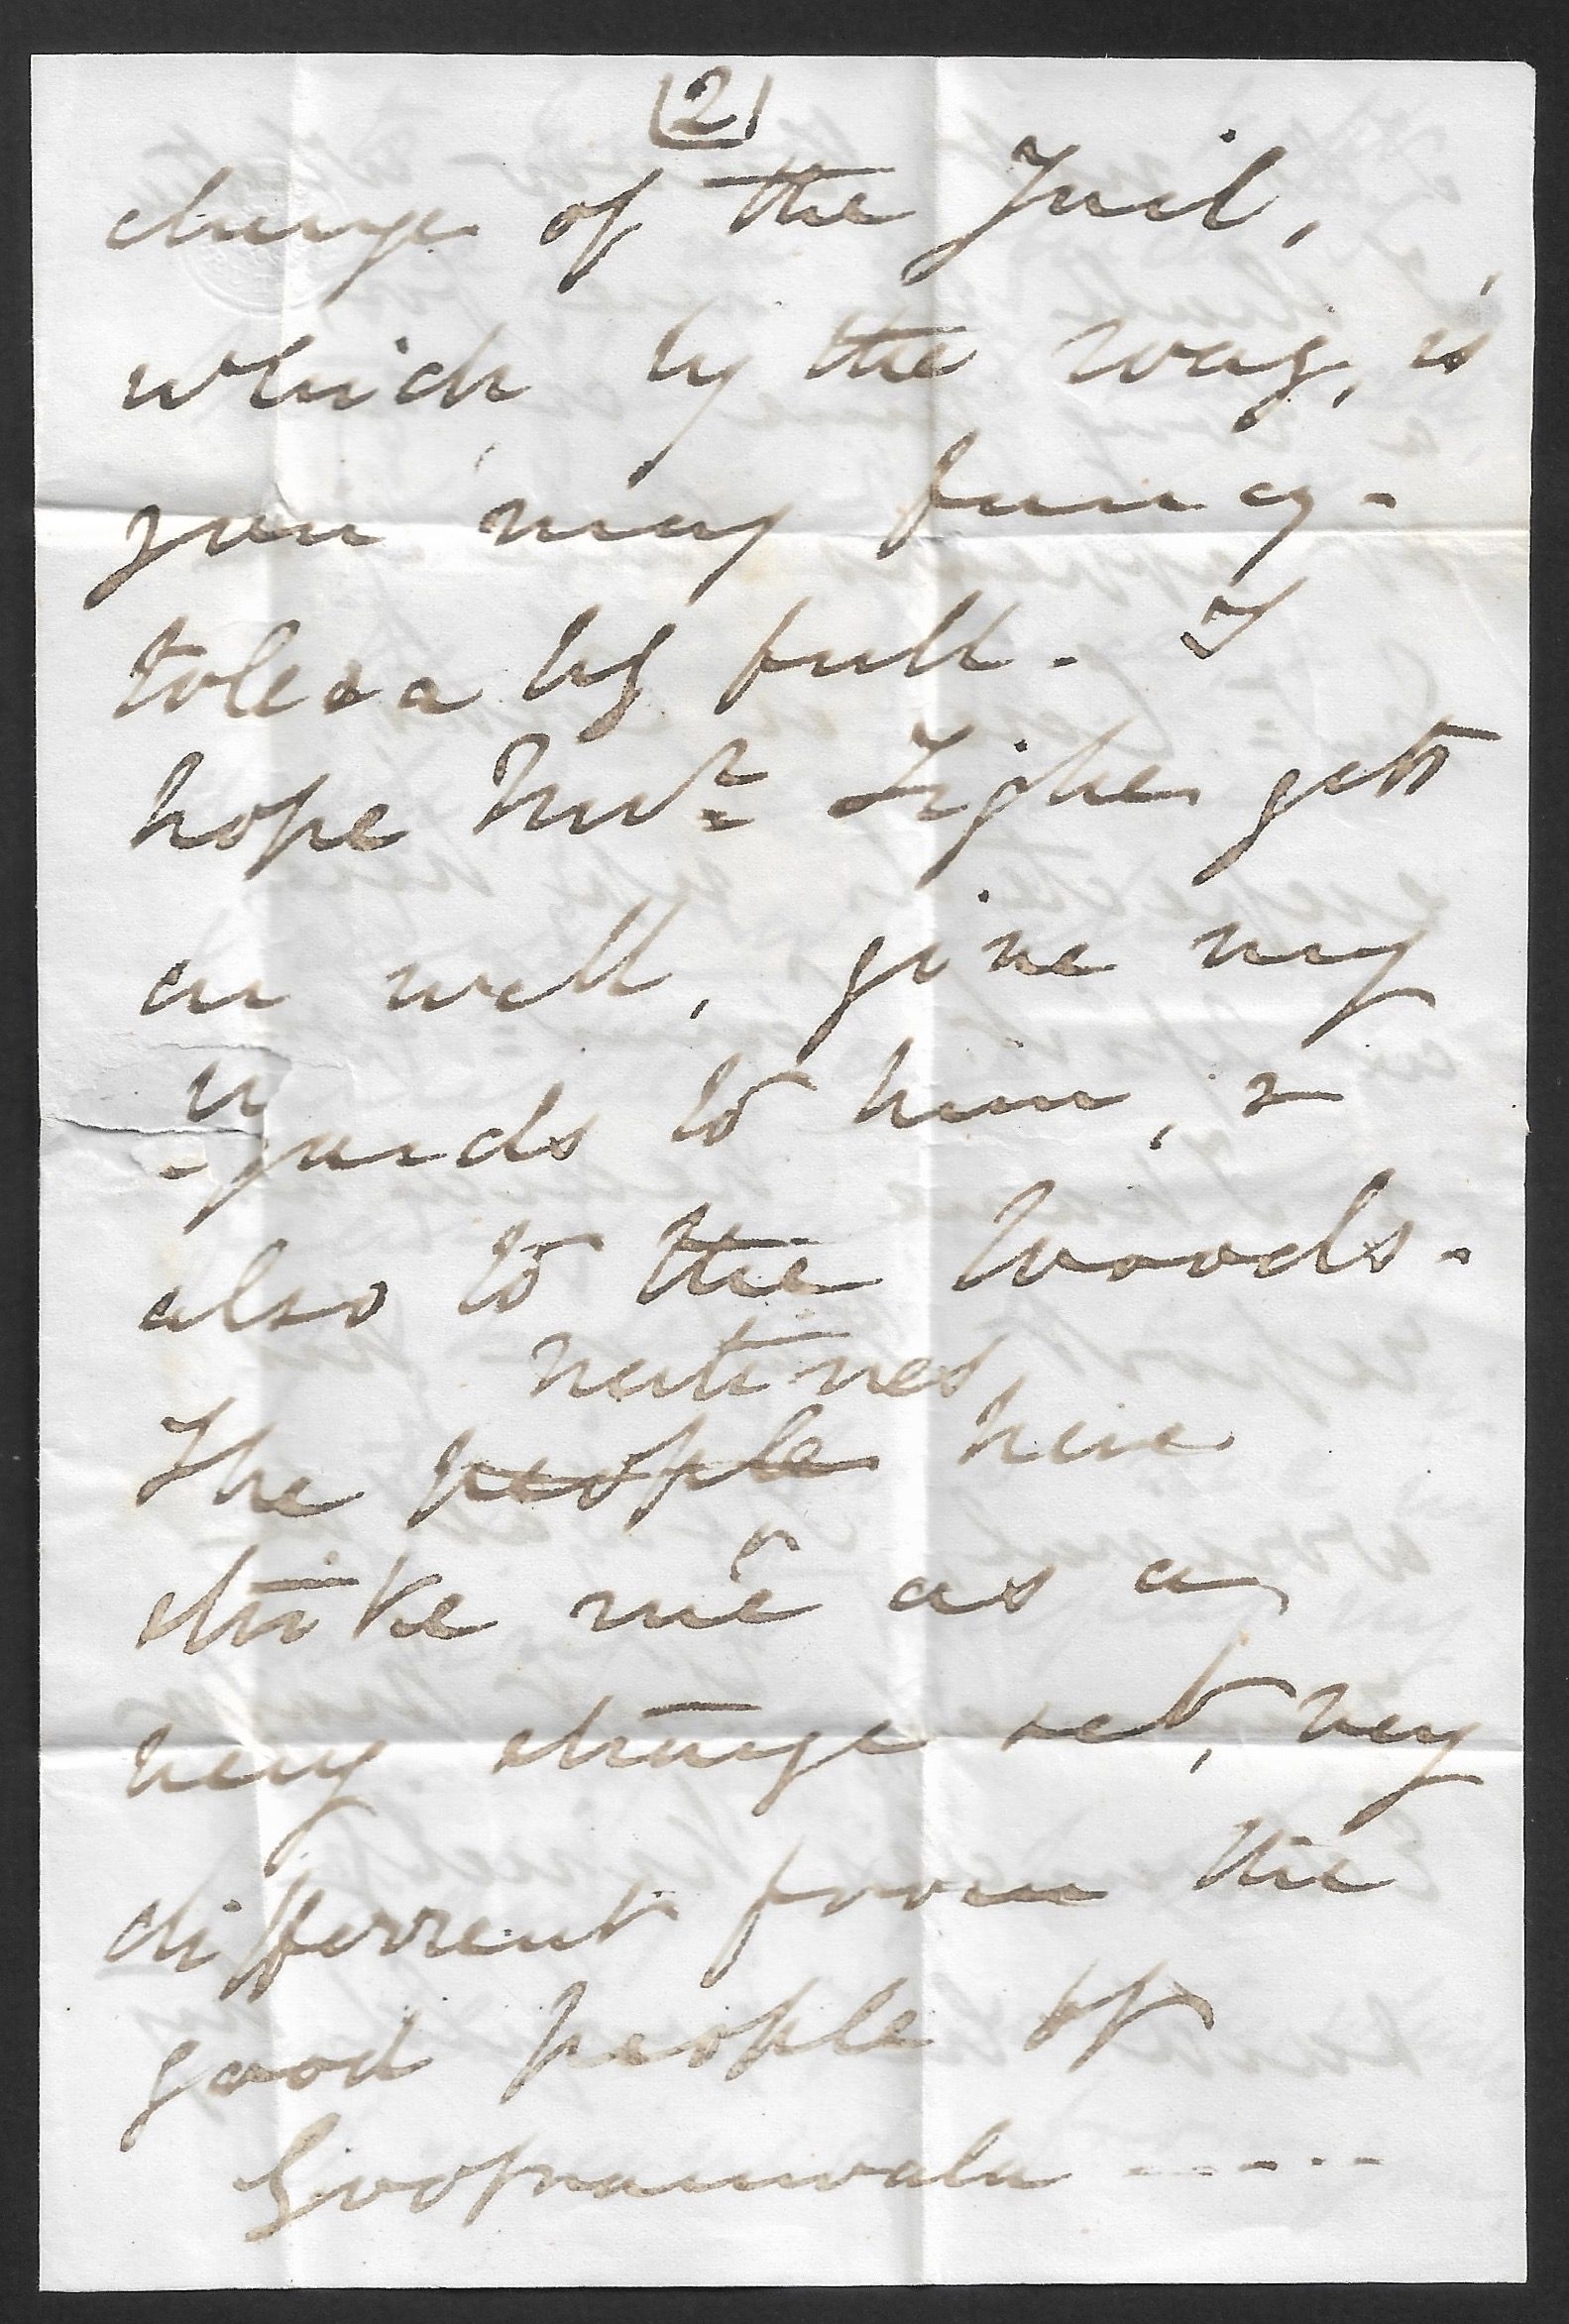 (2)
charge of the Jail,
which by the way, is
you may fancy -
tolerably full. I
hope Mr Tighe gets
on well, give my
regards to him, &
also to the Woods.
natives
The people here
strike me as a
very strange set, very
different from the
good people of
Goojranwala -----